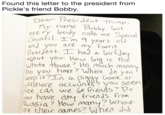 Found this letter to the president from
Pickle's friend Bobby.
Dear President Trump,
My name Bobby but
every body calls me Special
Council. I'm 9 years old
and you are my Favrit
President. I had a birthday
about you. How big is the
White House? Ho much monny
Do you have? Where do you
kep it?
Are we friends? Do
you have any friends from
Russia? How many? What
are their names? When did